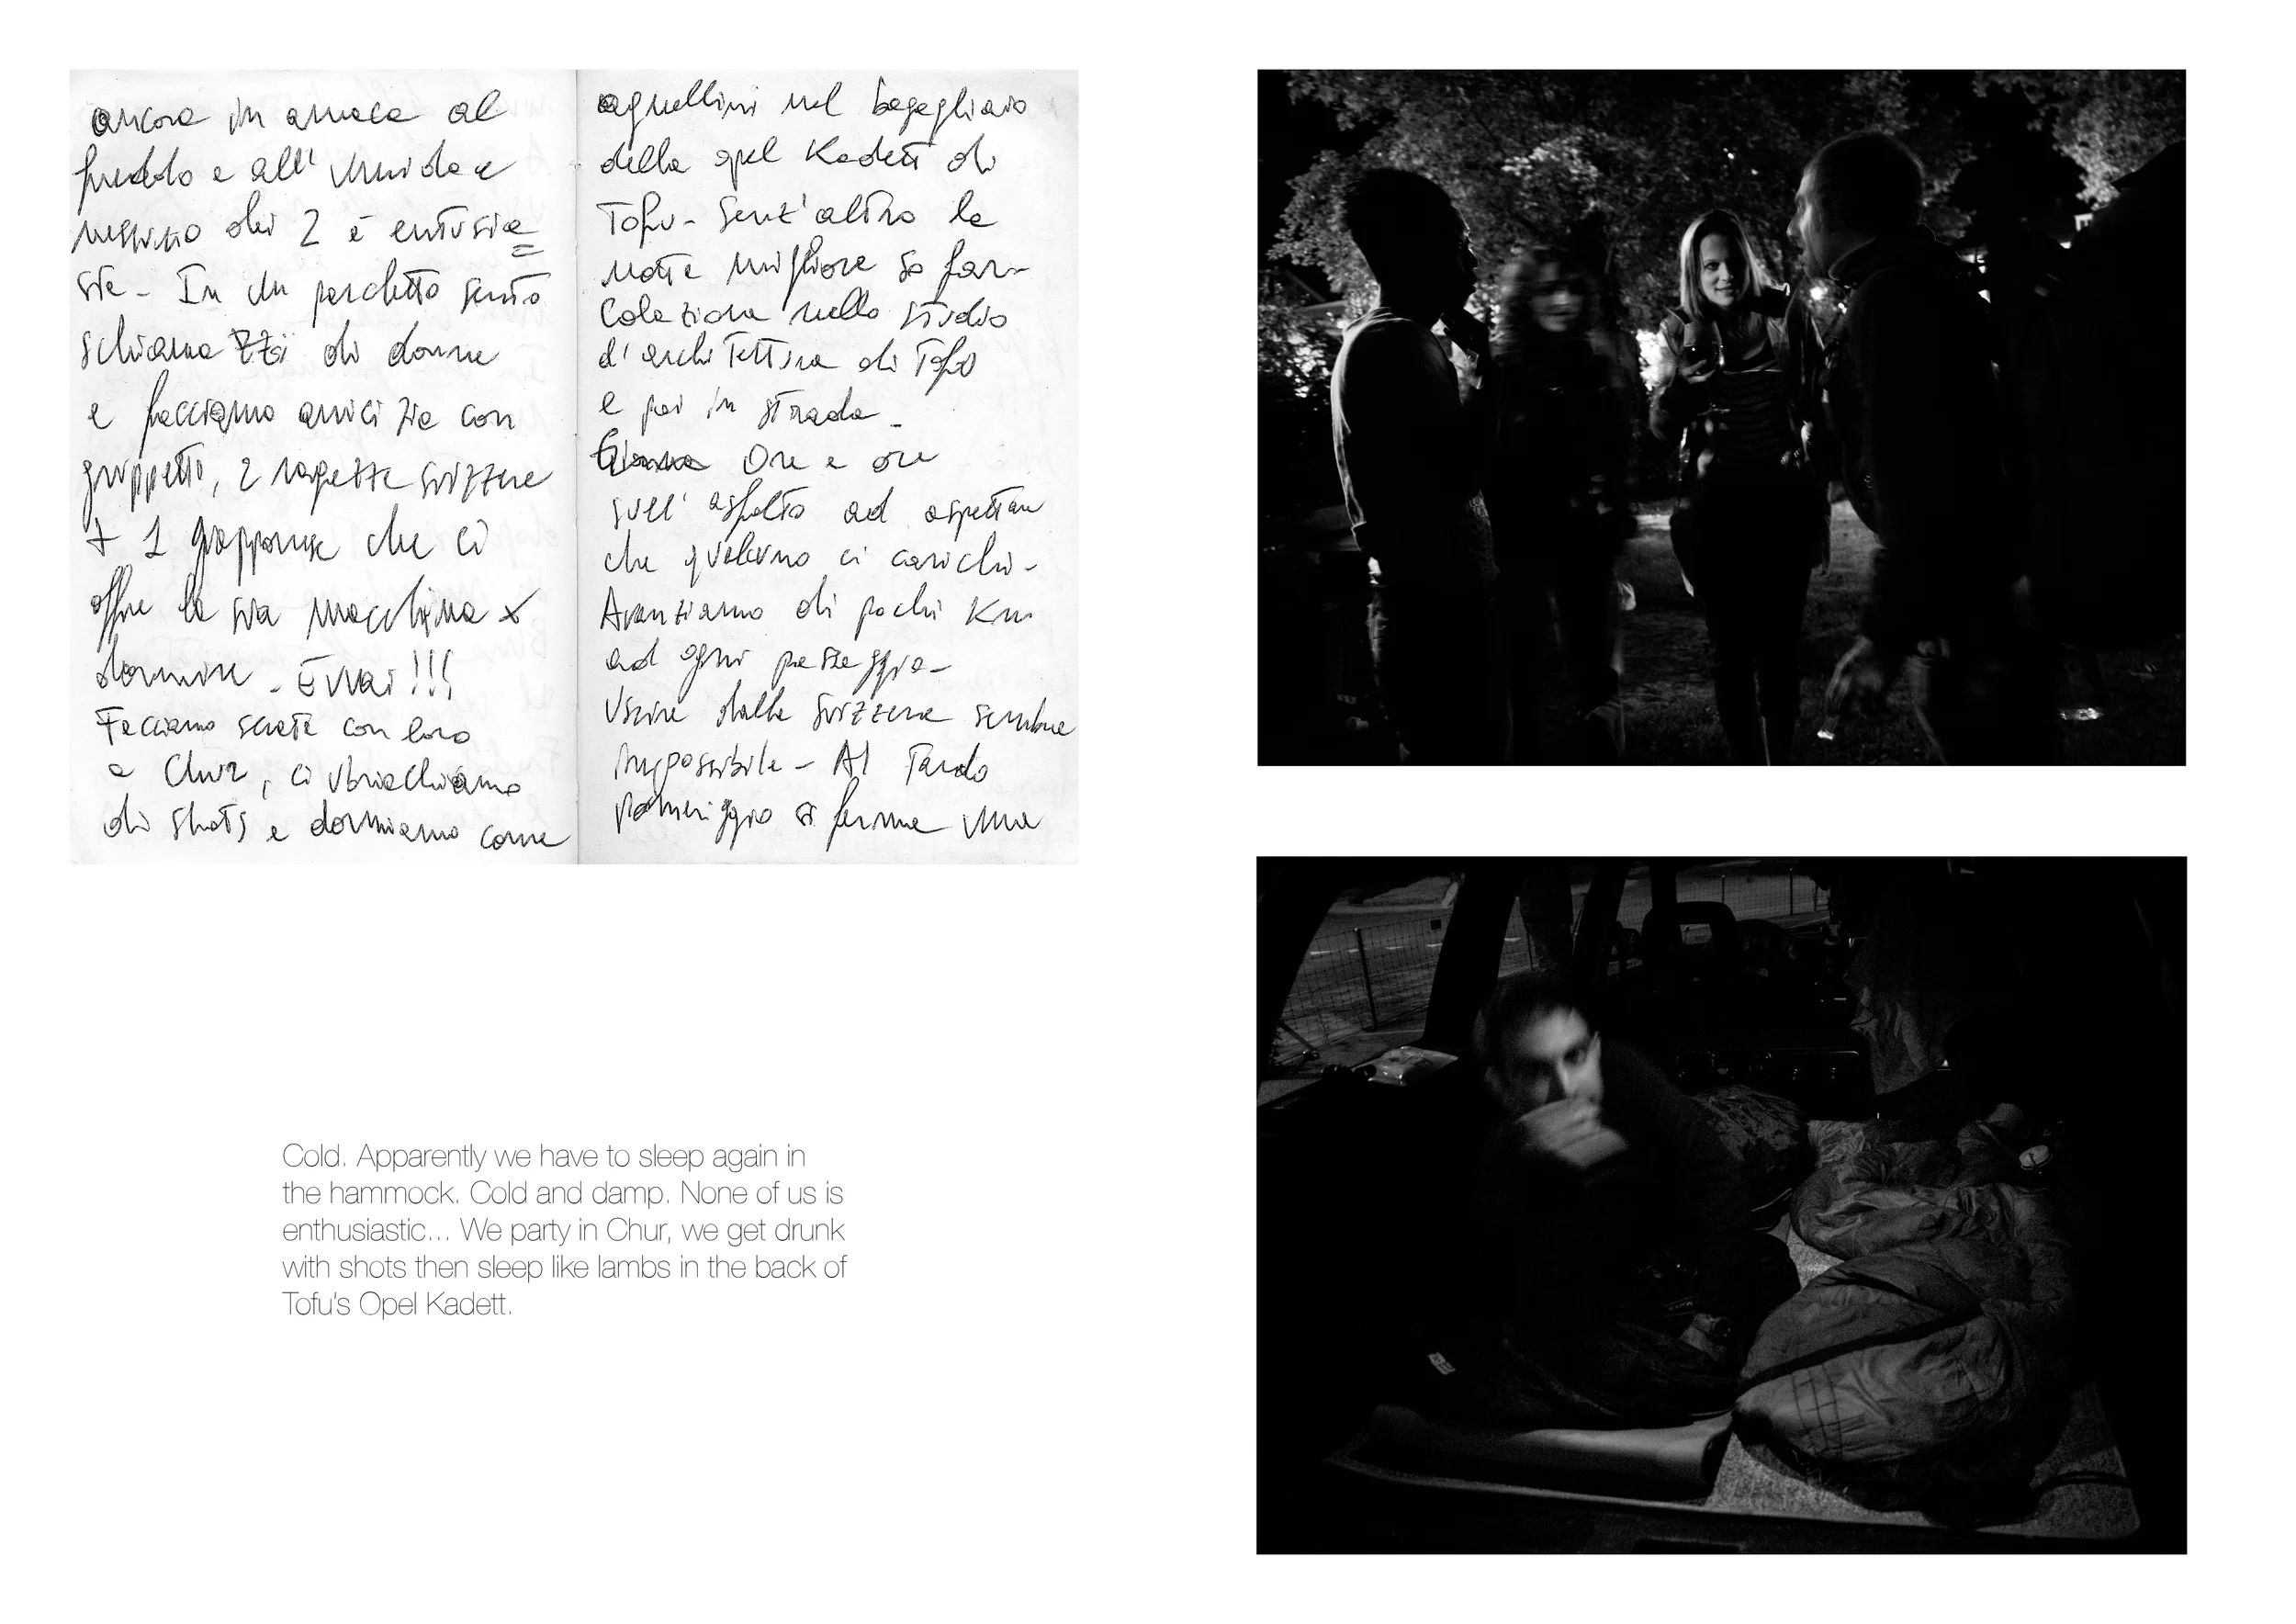 ancora in amaca al
freddo e all'umido e
nessuno dei 2 è entusia=
sta - In un parchetto sento
schiamazzi di donne
e facciamo amicizia con
gruppetto, 2 ragazze svizzere
+ 1 giapponese che ci
offre la sua macchina x
dormire - Evvai!!!
Facciamo serata con loro
a Chur, ci ubriachiamo
di shots e dormiamo come
agnellini nel bagagliaio
della opel Kadett di
Tofu - Senz'altro la
notte migliore so far -
Colazione nello studio
d'architettura di Tofu
e poi in strada -
Ore e ore
sull'asfalto ad aspettare
che qualcuno ci carichi -
Avanziamo di pochi Km
ad ogni passaggio -
Uscire dalla Svizzera sembra
impossibile - Al tardo
pomeriggio si ferma una
Cold. Apparently we have to sleep again in
the hammock. Cold and damp. None of us is
enthusiastic... We party in Chur, we get drunk
with shots then sleep like lambs in the back of
Tofu's Opel Kadett.